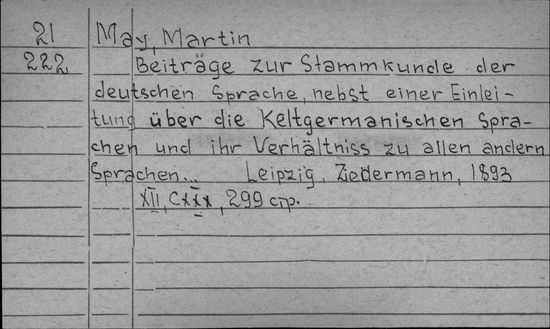 21 May, Martin
222 Beiträge zur Stammkunde der
deutschen Sprache, nebst einer Einlei-
tung über die Keltgermanischen Spra-
chen und ihr Verhältniss zu allen andern
Sprachen... Leipzig, Ziedermann, 1893
XII, CXXX, 299 стр.